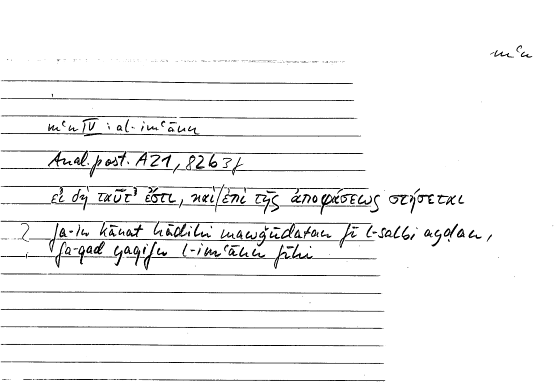 mʿn
mʿn IV : al-imʿānu
Anal. post. A 21, 82b34
εἰ δὴ ταῦτ' ἔστι, καὶ ἐπὶ τῆς ἀποφάσεως στήσεται
fa-in kānat hādihi mawǧūdatan fī l-salbi ayḍan,
fa-qad yaqifu l-imʿānu fīhi